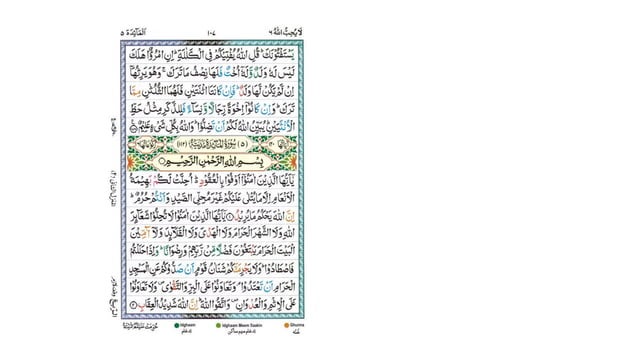 لَا يُحِبُّ اللّٰهُ ٦
١٠٧
اَلْمَآئِدَة ٥
يَسْتَفْتُوْنَكَ ؕ قُلِ اللّٰهُ يُفْتِيْكُمْ فِي الْكَلٰلَةِ ؕ اِنِ امْرُؤٌا هَلَكَ
لَيْسَ لَهٗ وَلَدٌ وَّلَهٗۤ اُخْتٌ فَلَهَا نِصْفُ مَا تَرَكَ ۚ وَهُوَ يَرِثُهَاۤ
اِنْ لَّمْ يَكُنْ لَّهَا وَلَدٌ ؕ فَاِنْ كَانَتَا اثْنَتَيْنِ فَلَهُمَا الثُّلُثٰنِ مِمَّا
تَرَكَ ؕ وَاِنْ كَانُوْۤا اِخْوَةً رِّجَالًا وَّنِسَآءً فَلِلذَّكَرِ مِثْلُ حَظِّ
الْاُنْثَيَيْنِ ؕ يُبَيِّنُ اللّٰهُ لَكُمْ اَنْ تَضِلُّوْا ؕ وَاللّٰهُ بِكُلِّ شَيْءٍ عَلِيْمٌ
(٥) سُوْرَةُ الْمَآئِدَةِ مَدَنِيَّةٌ (١١٢)
بِسْمِ اللّٰهِ الرَّحْمٰنِ الرَّحِيْمِ
يٰۤاَيُّهَا الَّذِيْنَ اٰمَنُوْۤا اَوْفُوْا بِالْعُقُوْدِ ؕ اُحِلَّتْ لَكُمْ بَهِيْمَةُ
الْاَنْعَامِ اِلَّا مَا يُتْلٰى عَلَيْكُمْ غَيْرَ مُحِلِّي الصَّيْدِ وَاَنْتُمْ حُرُمٌ ؕ
اِنَّ اللّٰهَ يَحْكُمُ مَا يُرِيْدُ ١ يٰۤاَيُّهَا الَّذِيْنَ اٰمَنُوْا لَا تُحِلُّوْا شَعَآئِرَ
اللّٰهِ وَلَا الشَّهْرَ الْحَرَامَ وَلَا الْهَدْيَ وَلَا الْقَلَآئِدَ وَلَاۤ آٰمِّيْنَ
الْبَيْتَ الْحَرَامَ يَبْتَغُوْنَ فَضْلًا مِّنْ رَّبِّهِمْ وَرِضْوَانًا ؕ وَاِذَا حَلَلْتُمْ
فَاصْطَادُوْا ؕ وَلَا يَجْرِمَنَّكُمْ شَنَاٰنُ قَوْمٍ اَنْ صَدُّوْكُمْ عَنِ الْمَسْجِدِ
الْحَرَامِ اَنْ تَعْتَدُوْا ۘ وَتَعَاوَنُوْا عَلَى الْبِرِّ وَالتَّقْوٰى ۪ وَلَا تَعَاوَنُوْا
عَلَى الْاِثْمِ وَالْعُدْوَانِ ۪ وَاتَّقُوا اللّٰهَ ؕ اِنَّ اللّٰهَ شَدِيْدُ الْعِقَابِ ٢
Idghaam
ادغام
Idghaam Meem Saakin
ادغام میم ساکن
Ghunna
غنّہ